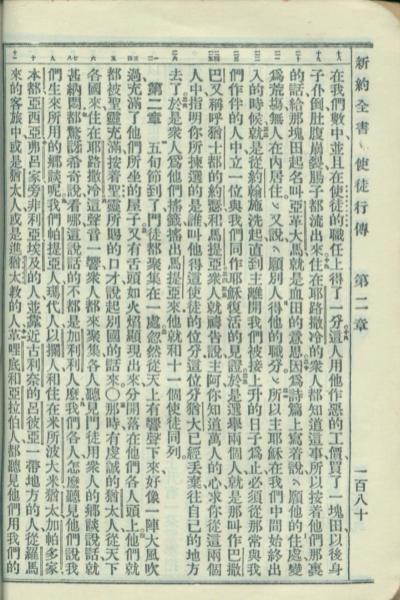 新約全書 使徒行傳 第二章 一百八十
在我們數中並且在使徒的職任上得了一分這人用他作惡的工價買了一塊田以後身
子仆倒肚腹崩裂腸子都流出來住在耶路撒冷的衆人都知道這事所以按着他們那裏
的話給那塊田起名叫亞革大馬就是血田的意思因爲詩篇上寫着說願他的住處變
爲荒塲無人在內居住又說願別人得他的職分所以主耶穌在我們中間始終出
入的時候就是從約翰施洗起直到主離開我們被接上升的日子爲止必須從那常與我
們作伴的人中立一位與我們同作耶穌復活的見證於是選舉兩個人就是那叫作巴撒
巴又稱呼猶士都的約瑟和馬提亞衆人就禱告說主阿你知道萬人的心求你從這兩個
人中指明你所揀選的是誰叫他得這使徒的位分這位分猶大已經丟棄往自己的地方
去了於是衆人爲他們搖籤搖出馬提亞來他就和十一個使徒同列
第二章 五旬節到了門徒都聚集在一處忽然從天上有響聲下來好像一陣大風吹
過充滿了他們所坐的屋子又有舌頭如火焰顯現出來分開落在他們各人頭上他們就
都被聖靈充滿按着聖靈所賜的口才說起別國的話來○那時有虔誠的猶太人從天下
各國來住在耶路撒冷這聲音一響衆人都來聚集各人聽見門徒用衆人的鄉談說話就
甚納悶都驚訝希奇說看哪這說話的不都是加利利人麼我們各人怎麼聽見他們說我
們生來所用的鄉談呢我們帕提亞人瑪代人以攔人和住在米所波大米猶太加帕多家
本都亞西亞弗呂家旁非利亞埃及的人並靠近古利奈的呂彼亞一帶地方的人從羅馬
來的客旅中或是猶太人或是進猶太教的人革哩底和亞拉伯人都聽見他們用我們的